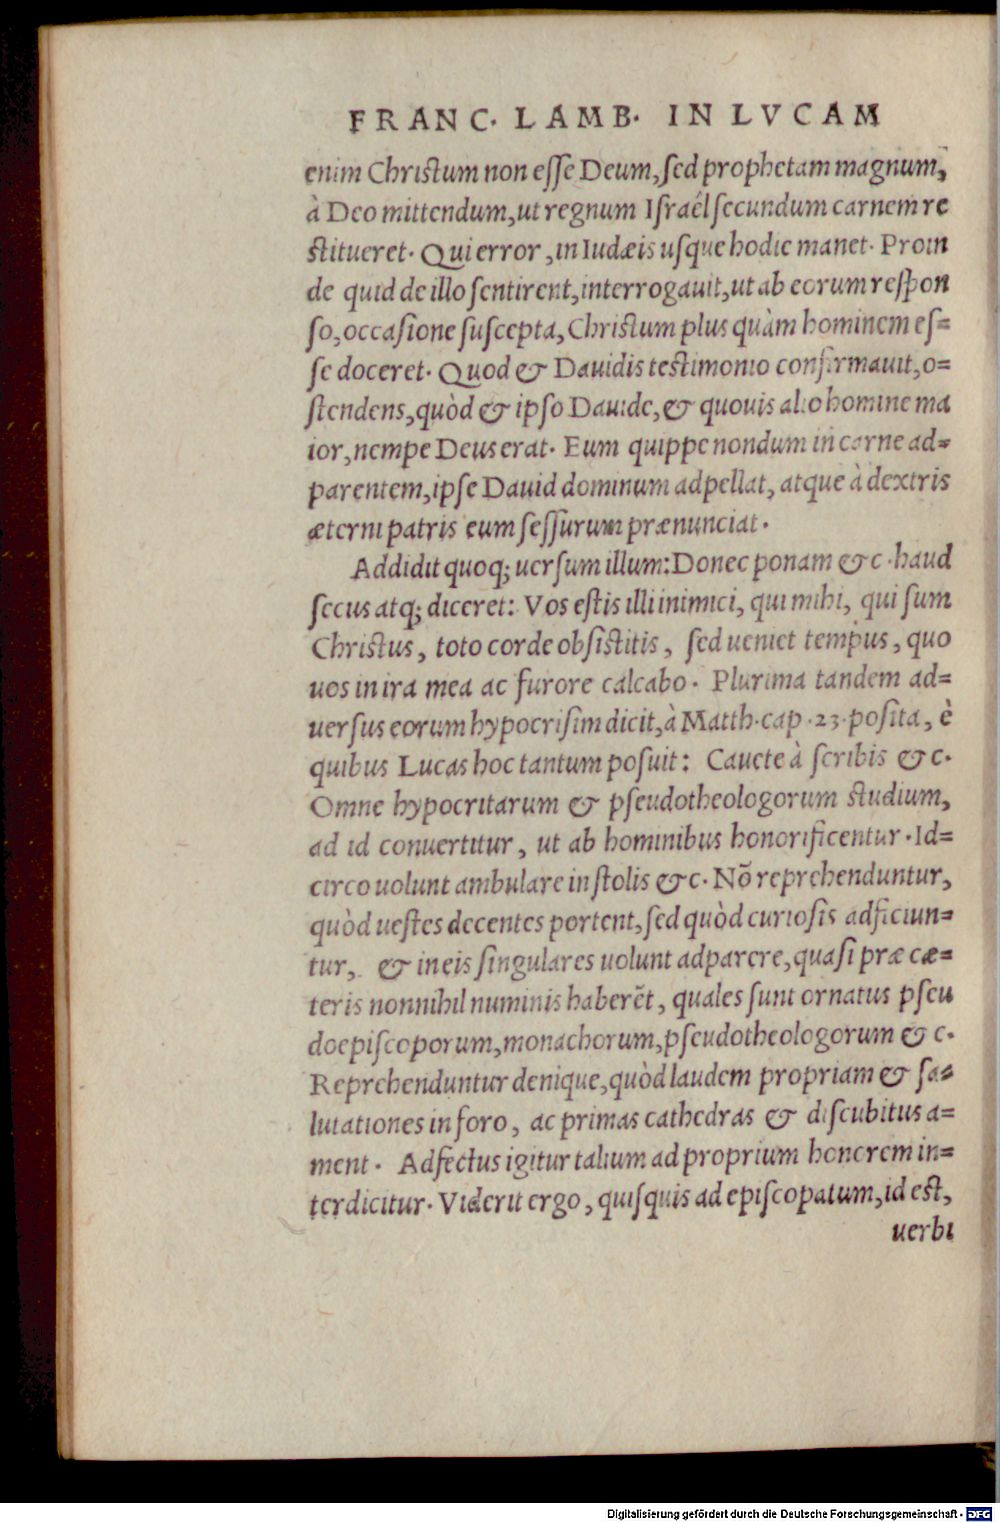 FRANC. LAMB. IN LVCAM
enim Christum non esse Deum, sed prophetam magnum,
à Deo mittendum, ut regnum Israêl secundum carnem re
stitueret. Qui error, in Iudæis usque hodie manet. Proin
de quid de illo sentirent, interrogauit, ut ab eorum respon
so, occasione suscepta, Christum plus quàm hominem es=
se doceret. Quod & Dauidis testimonio confirmauit, o=
stendens, quòd & ipso Dauide, & quouis alio homine ma
ior, nempe Deus erat. Eum quippe nondum in carne ad=
parentem, ipse Dauid dominum adpellat, atque à dextris
æterni patris eum sessurum prænunciat.
Addidit quoq; uersum illum: Donec ponam &c. haud
secus atq; diceret: Vos estis illi inimici, qui mihi, qui sum
Christus, toto corde obsistitis, sed ueniet tempus, quo
uos in ira mea ac furore calcabo. Plurima tandem ad=
uersus eorum hypocrisim dicit, à Matth. cap. 23. posita, è
quibus Lucas hoc tantum posuit: Cauete à scribis &c.
Omne hypocritarum & pseudotheologorum studium,
ad id conuertitur, ut ab hominibus honorificentur. Id=
circo uolunt ambulare in stolis &c. Nõ reprehenduntur,
quòd uestes decentes portent, sed quòd curiosis adficiun=
tur, & in eis singulares uolunt adparere, quasi præ cæ=
teris nonnihil numinis haberẽt, quales sunt ornatus pseu
doepiscoporum, monachorum, pseudotheologorum & c.
Reprehenduntur denique, quòd laudem propriam & sa=
lutationes in foro, ac primas cathedras & discubitus a=
ment. Adfectus igitur talium ad proprium honorem in=
terdicitur. Viderit ergo, quisquis ad episcopatum, id est,
uerbi
Digitalisierung gefördert durch die Deutsche Forschungsgemeinschaft - DFG